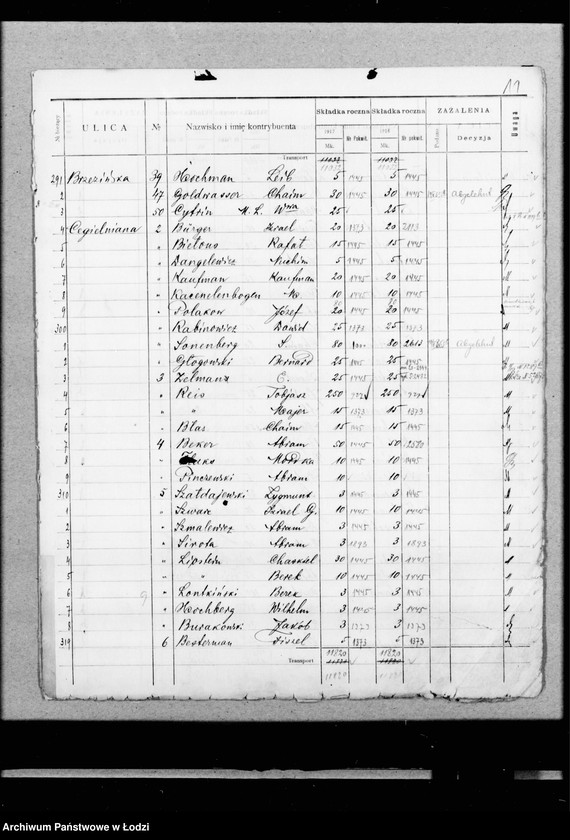 11
№ bieżący ULICA № Nazwisko i imię kontrybuenta Składka roczna Składka roczna ZAŻALENIA Uwaga
1917 Mk. № Pokwit. 1918 Mk. № pokwit. Podanie Decyzja
Transport
291 Brzezińska 39 Hochman Leib 5 1445 5 1445
2 " 47 Goldwasser Chaim 30 1445 30 1445
3 " 50 Cytrin M. L. Wwa 25 25
4 Cegielniana 2 Bürger Izrael 20 1373 20
5 " Bietous Rafał 15 1445 15 1445
6 " Dangelewicz Nuchim 5 1445 5 1445
7 " Kaufman Kaufman 20 1445 20 1445
8 " Kacenelenbogen 10 1445 10 1445
9 " Polakow Józef 20 1445 20 1445
300 " Rabinowicz Dawid 25 1373 25 1373
1 " Sonenberg S. 80 80
2 " Głogowski Bernard 25 1445 25 1445
3 3 Zelmanz C. 25 1445 25
4 " Reis Tobjasz 250 250
5 " " Majer 15 1373 15 1373
6 " Blas Chaim 15 1445 15 1445
7 4 Beker Abram 50 1445 50
8 " Mordka 10 1445 10 1445
9 " Pinczewski Abram 10 10
310 5 Szatdajewski Zygmunt 3 1445 3 1445
1 " Szwarc Izrael G. 10 1445 10 1445
2 " Szmalewicz Abram 3 1445 3 1445
3 " Sirota Abram 3 1373 3 1373
4 " Lipstein Chaskiel 30 1445 30 1445
5 " " Berek 10 1445 10 1445
6 " Lontkiński Berek 3 1445 3 1445
7 " Hochberg Wilhelm 3 1445 3 1445
8 " Burakowski Jakób 3 1373 3 1373
319 6 Besterman Fiszel 5 1373 5 1373
11820 11820
Transport
11820
Archiwum Państwowe w Łodzi